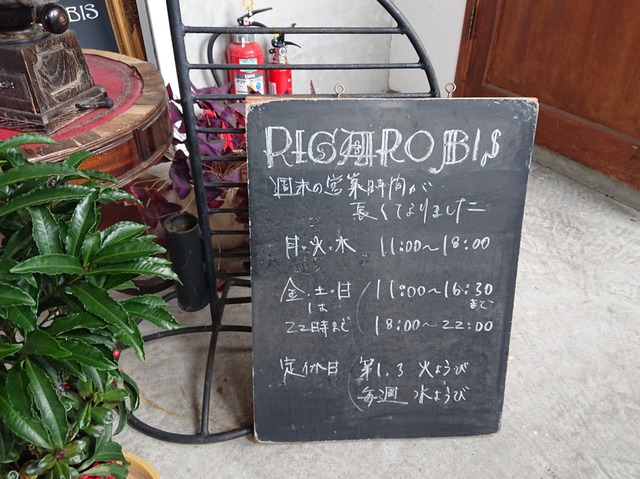 BIS
RIGAROBIS
週末の営業時間が
長くなりましたー
月・火・水 11:00〜18:00
金・土・日 11:00〜16:30
は まで
22時まで 18:00〜22:00
定休日 第1.3 火ようび
毎週 水ようび